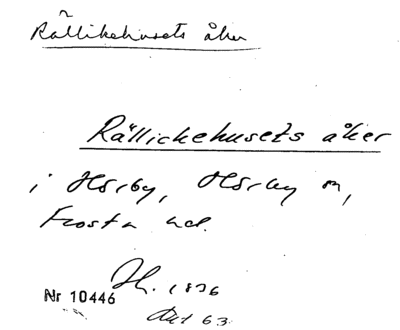 Rällikehusets åker
Rällickehusets åker
i Hörby, Hörby sn,
Frosta hd.
Sk. 1836
Nr 10446
Akt 63